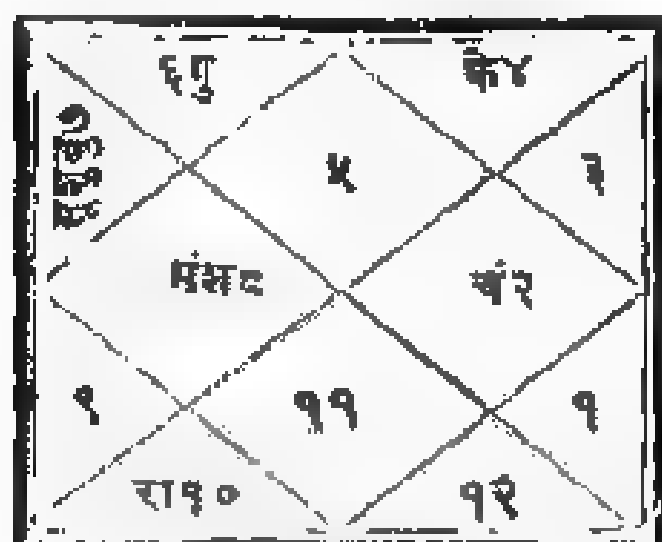 ६गु
के४
५
३
मंश८
चं२
९
११
१
रा१०
१२